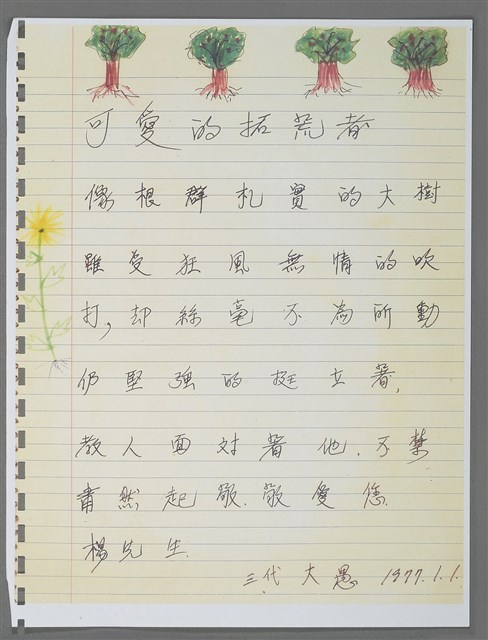 可愛的拓荒者
像根群札實的大樹
雖受狂風無情的吹
打,却絲毫不為所動
仍堅強的挺立著,
教人面對著他.不禁
肅然起敬.敬愛您.
楊先生.
三代 大愚 1977.1.1.